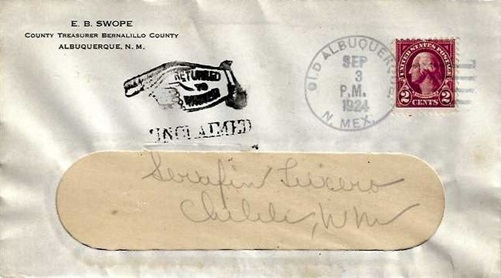 E. B. SWOPE
COUNTY TREASURER BERNALILLO COUNTY
ALBUQUERQUE, N. M.
RETURNED
TO
WRITER
UNCLAIMED
OLD ALBUQUERQUE
SEP
3
P.M.
1924
N. MEX.
UNITED STATES POSTAGE
2 CENTS 2
Serafin Lucero
Chilili, NM